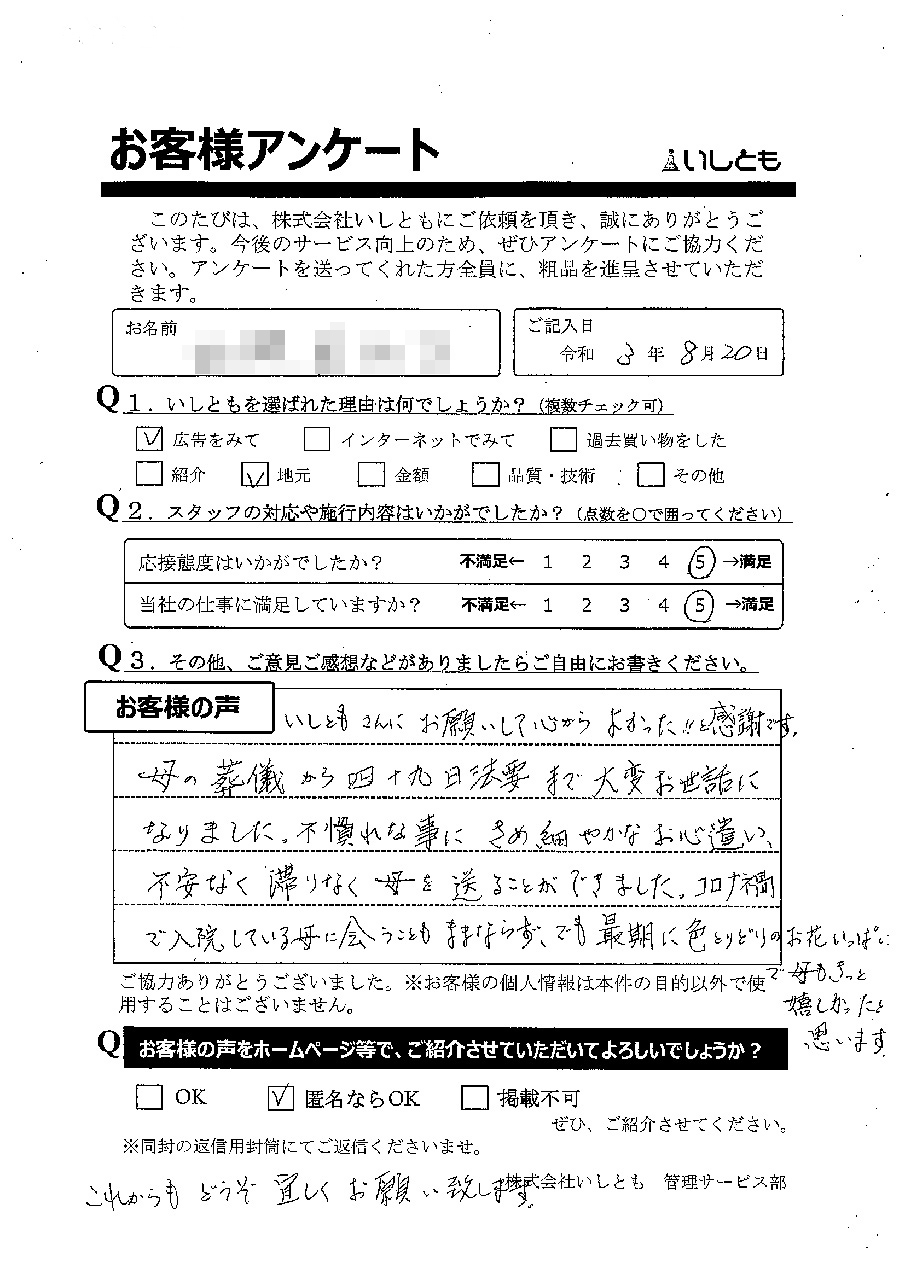 お客様アンケート
いしとも
このたびは、株式会社いしともにご依頼を頂き、誠にありがとうご
ざいます。今後のサービス向上のため、ぜひアンケートにご協力くだ
さい。アンケートを送ってくれた方全員に、粗品を進呈させていただ
きます。
お名前
ご記入日
令和 3 年 8月20日
Q1．いしともを選ばれた理由は何でしょうか？（複数チェック可）
広告をみて インターネットでみて 過去買い物をした
紹介 地元 金額 品質・技術 その他
Q2．スタッフの対応や施行内容はいかがでしたか？（点数を○で囲ってください）
応接態度はいかがでしたか？ 不満足← 1 2 3 4 5 →満足
当社の仕事に満足していますか？ 不満足← 1 2 3 4 5 →満足
Q3．その他、ご意見ご感想などがありましたらご自由にお書きください。
お客様の声
いしともさんにお願いして心からよかった!!と感謝です。
母の葬儀から四十九日法要まで大変お世話に
なりました。不慣れな事にきめ細やかなお心遣い、
不安なく滞りなく母を送ることができました。コロナ禍
で入院している母に会うこともままならず、でも最期に色とりどりのお花いっぱい
で母もきっと
嬉しかったと
思います
ご協力ありがとうございました。※お客様の個人情報は本件の目的以外で使
用することはございません。
Q お客様の声をホームページ等で、ご紹介させていただいてよろしいでしょうか？
OK 匿名ならOK 掲載不可
ぜひ、ご紹介させてください。
※同封の返信用封筒にてご返信くださいませ。
株式会社いしとも 管理サービス部
これからもどうぞ宜しくお願い致します。